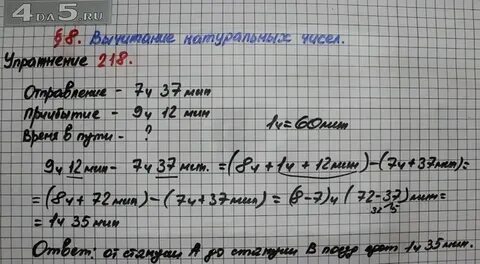 4DA5.RU
§8. Вычитание натуральных чисел.
Упражнение 218.
Отправление - 7ч 37 мин
Прибытие - 9ч 12 мин
Время в пути - ?
1ч = 60 мин
9ч 12 мин - 7ч 37 мин. = (8ч + 1ч + 12 мин) - (7ч + 37 мин) =
= (8ч + 72 мин) - (7ч + 37 мин) = (8 - 7)ч (72 - 37) мин =
= 1ч 35 мин
Ответ: от станции А до станции В поезд идет 1ч 35 мин.